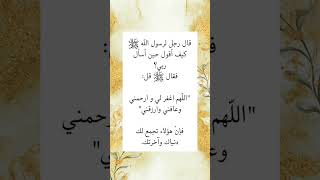 قال رجل لرسول الله ﷺ
كيف أقول حين أسأل
ربي؟
فقال ﷺ قل:
"اللّهم اغفر لي و ارحمني
وعافني وارزقني"
فإنّ هؤلاء تجمع لك
دنياك وآخرتك.